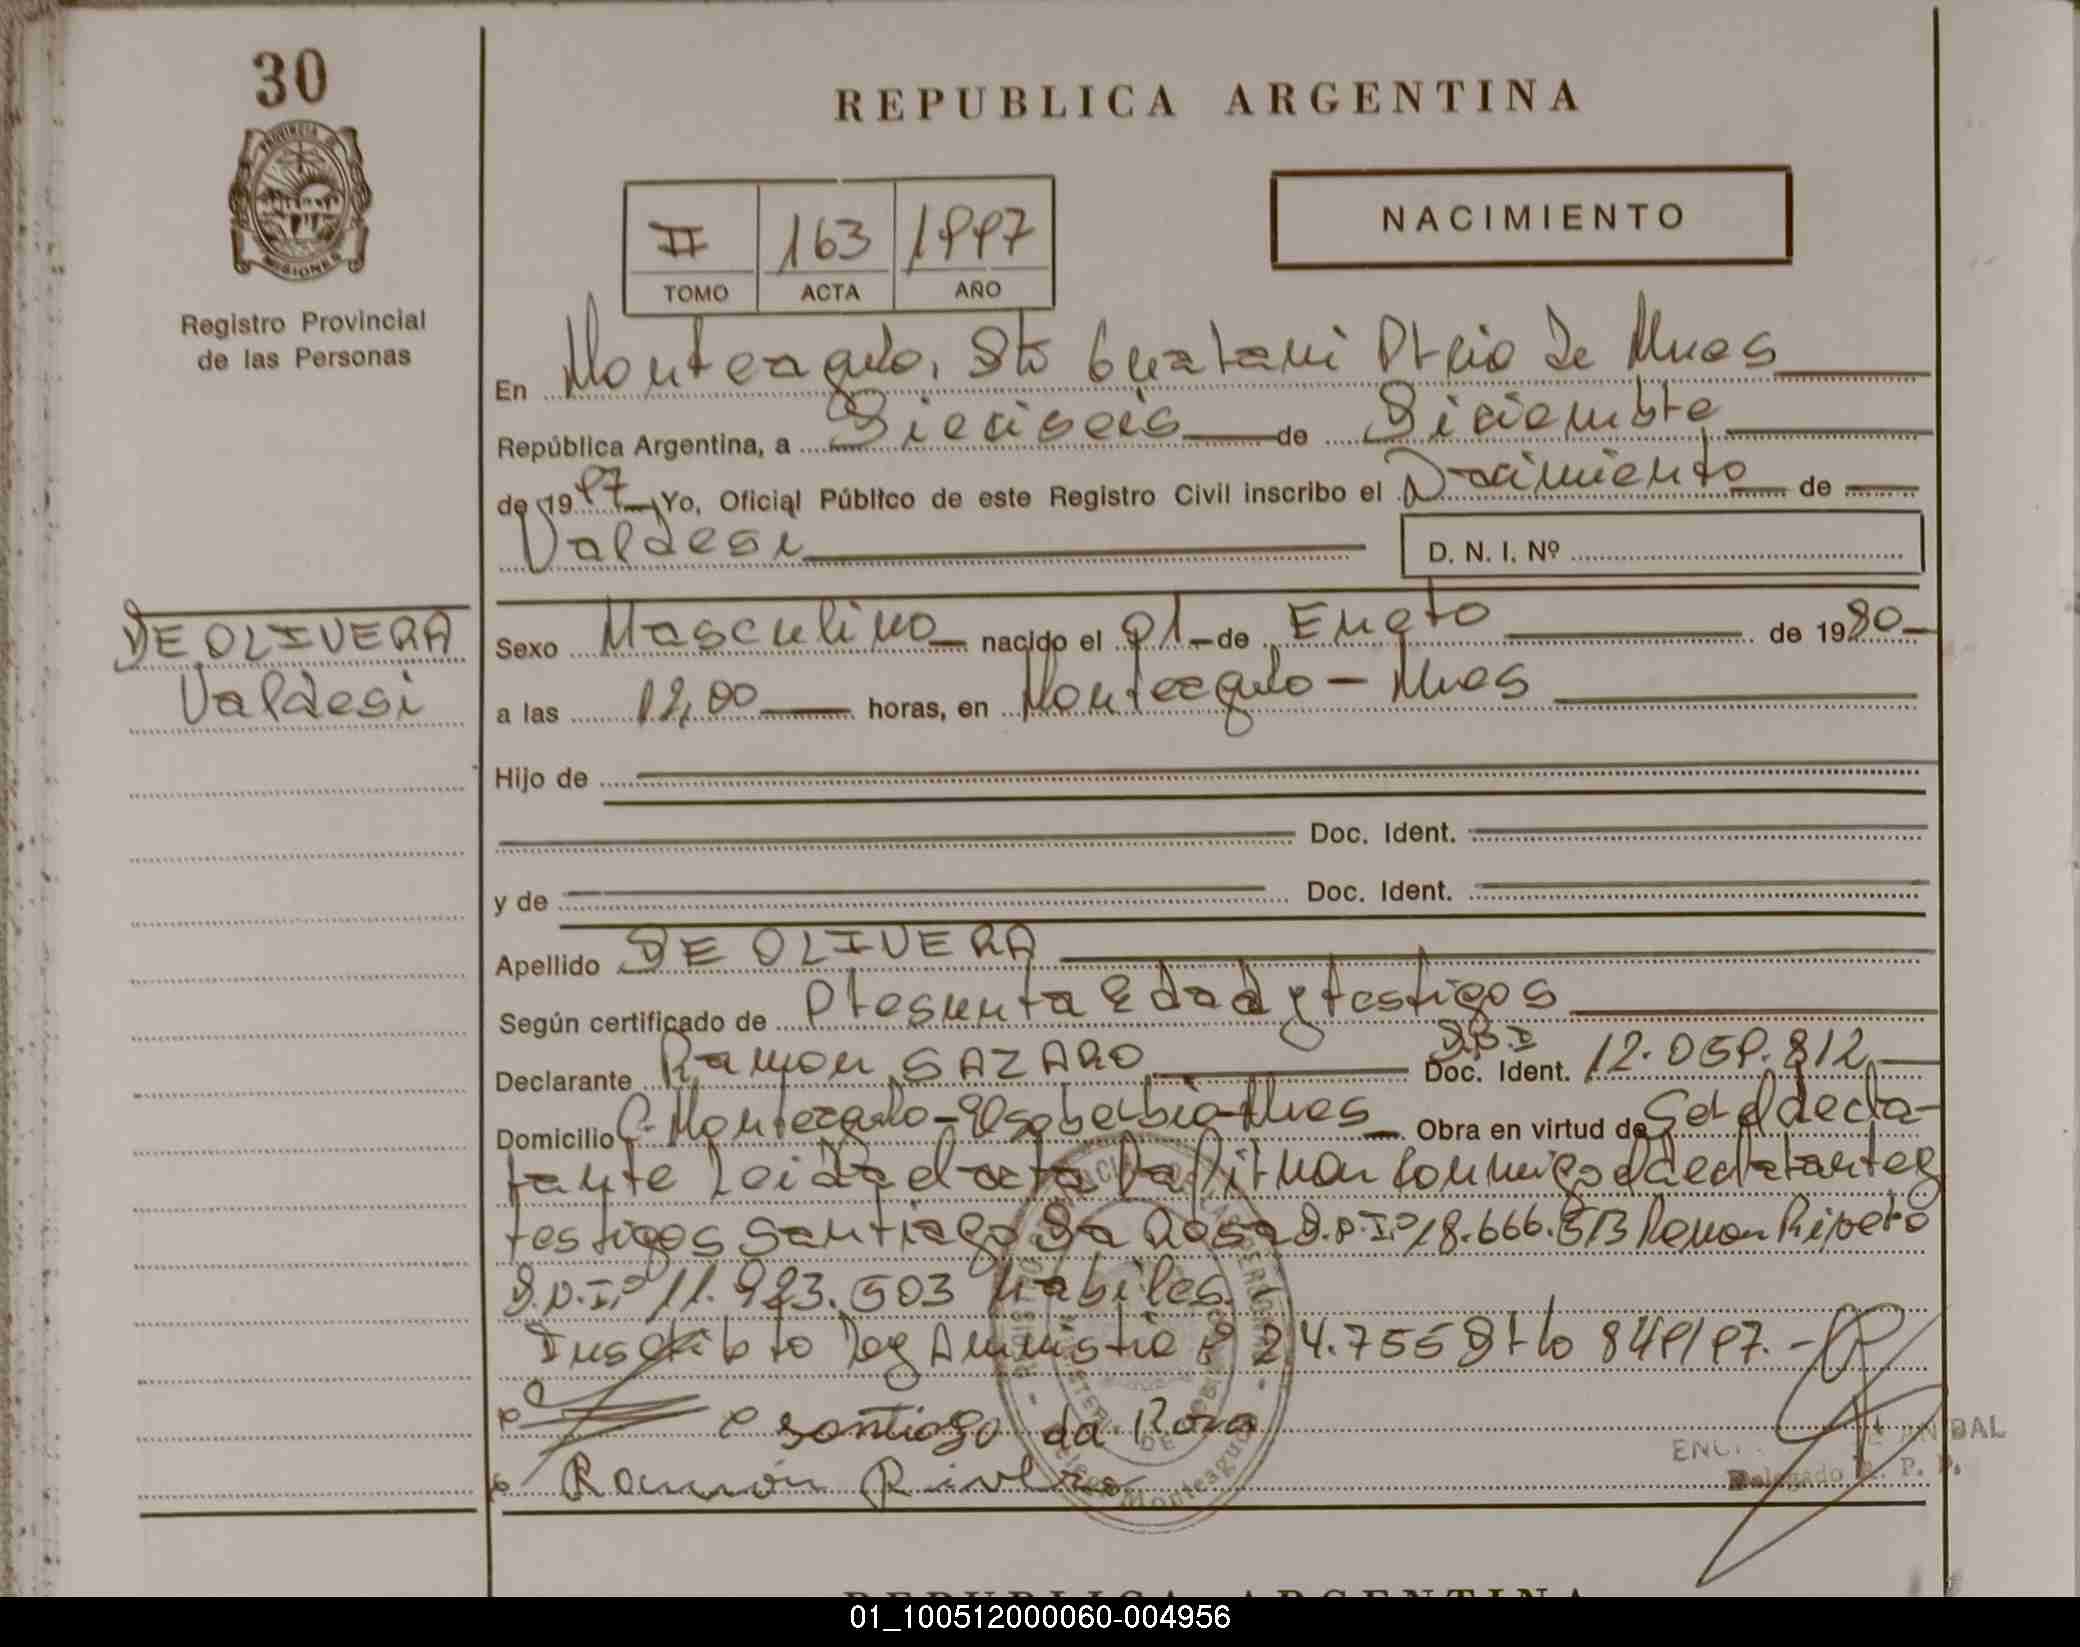 30
REPUBLICA ARGENTINA
PROVINCIA DE
MISIONES
NACIMIENTO
II 163 1997
TOMO ACTA AÑO
Registro Provincial
de las Personas
En Monteagudo, Gto Guarani Pteio de Mnes
República Argentina, a Dieciseis de Diciembre
de 1997 Yo, Oficial Público de este Registro Civil inscribo el Nacimiento de
Valdesi
D. N. I. Nº
DE OLIVERA
Valdesi
Sexo Masculino nacido el 01 de Enero de 1980
a las 12,00 horas, en Monteagudo - Mnes
Hijo de
Doc. Ident.
y de Doc. Ident.
Apellido DE OLIVERA
Según certificado de Presunta Edad y testigos
Declarante Ramon Doc. Ident. 12.059.812
Domicilio C. Monteagudo - El soberbio - Mnes Obra en virtud de Ser el decla-
rante Leida el acta la firman conmigo el declarante y
testigos Santiago Da Rosa D.N.I.º 18.666.513 Ramon Rivero
D.N.I.º 11.923.503 habiles.
Inscribto Ley Amnistia º 24.755 Dto 849/97.-
Santiago da Rosa
Ramón Rivero
Monteagudo
Delegado R. P. P.
REPUBLICA ARGENTINA
01_100512000060-004956